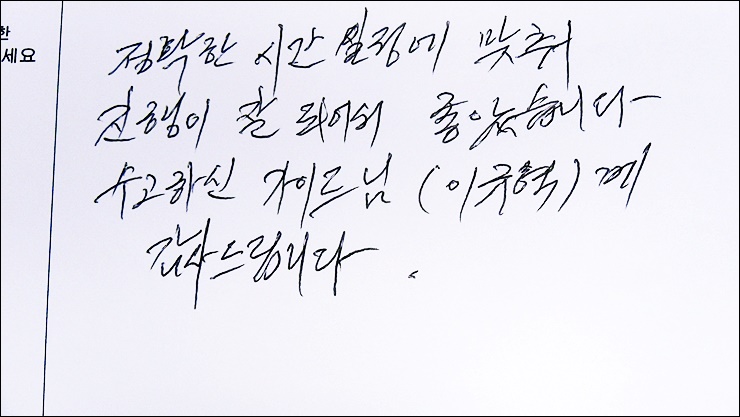 한
세요
정확한 시간 일정에 맞춰
진행이 잘 되어서 좋았습니다
수고하신 가이드님 (이규혁) 께
감사드립니다.